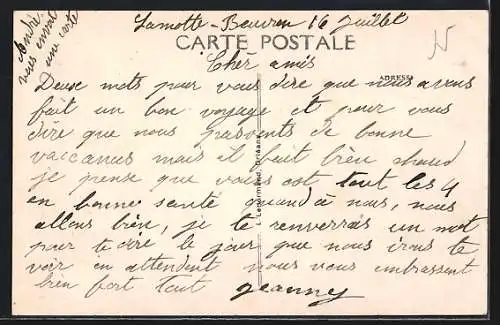 Lamotte-Beuvron 16 Juillet
André
vous envoit
une carte
CARTE POSTALE
Cher amis
ADRESSE
Deux mots pour vous dire que nous avons
fait un bon voyage et pour vous
dire que nous de bonne
vaccances mais il fait bien chaud
je pense que vous est tout les 4
en bonne santé quand à nous, nous
allons bien, je te renverrais un mot
pour te dire le jour que nous irons te
voir en attendent nous vous embrassent
bien fort tout Jeanny